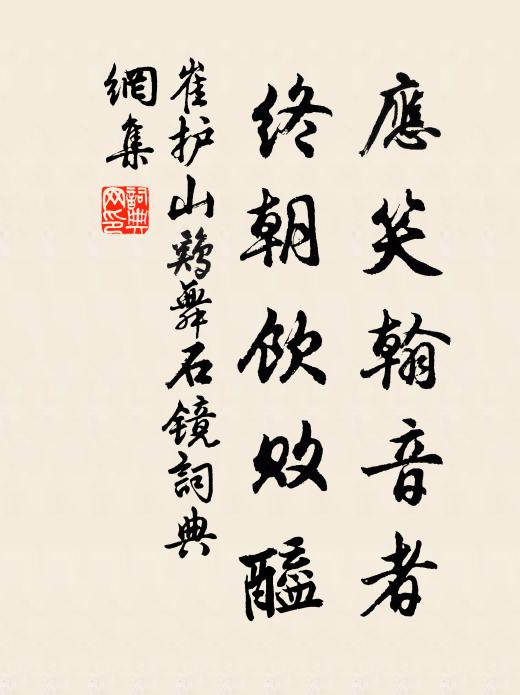 應笑翰音者
終朝飲败醯
崔护山鷄舞石镜詞典
網集
詞典網印